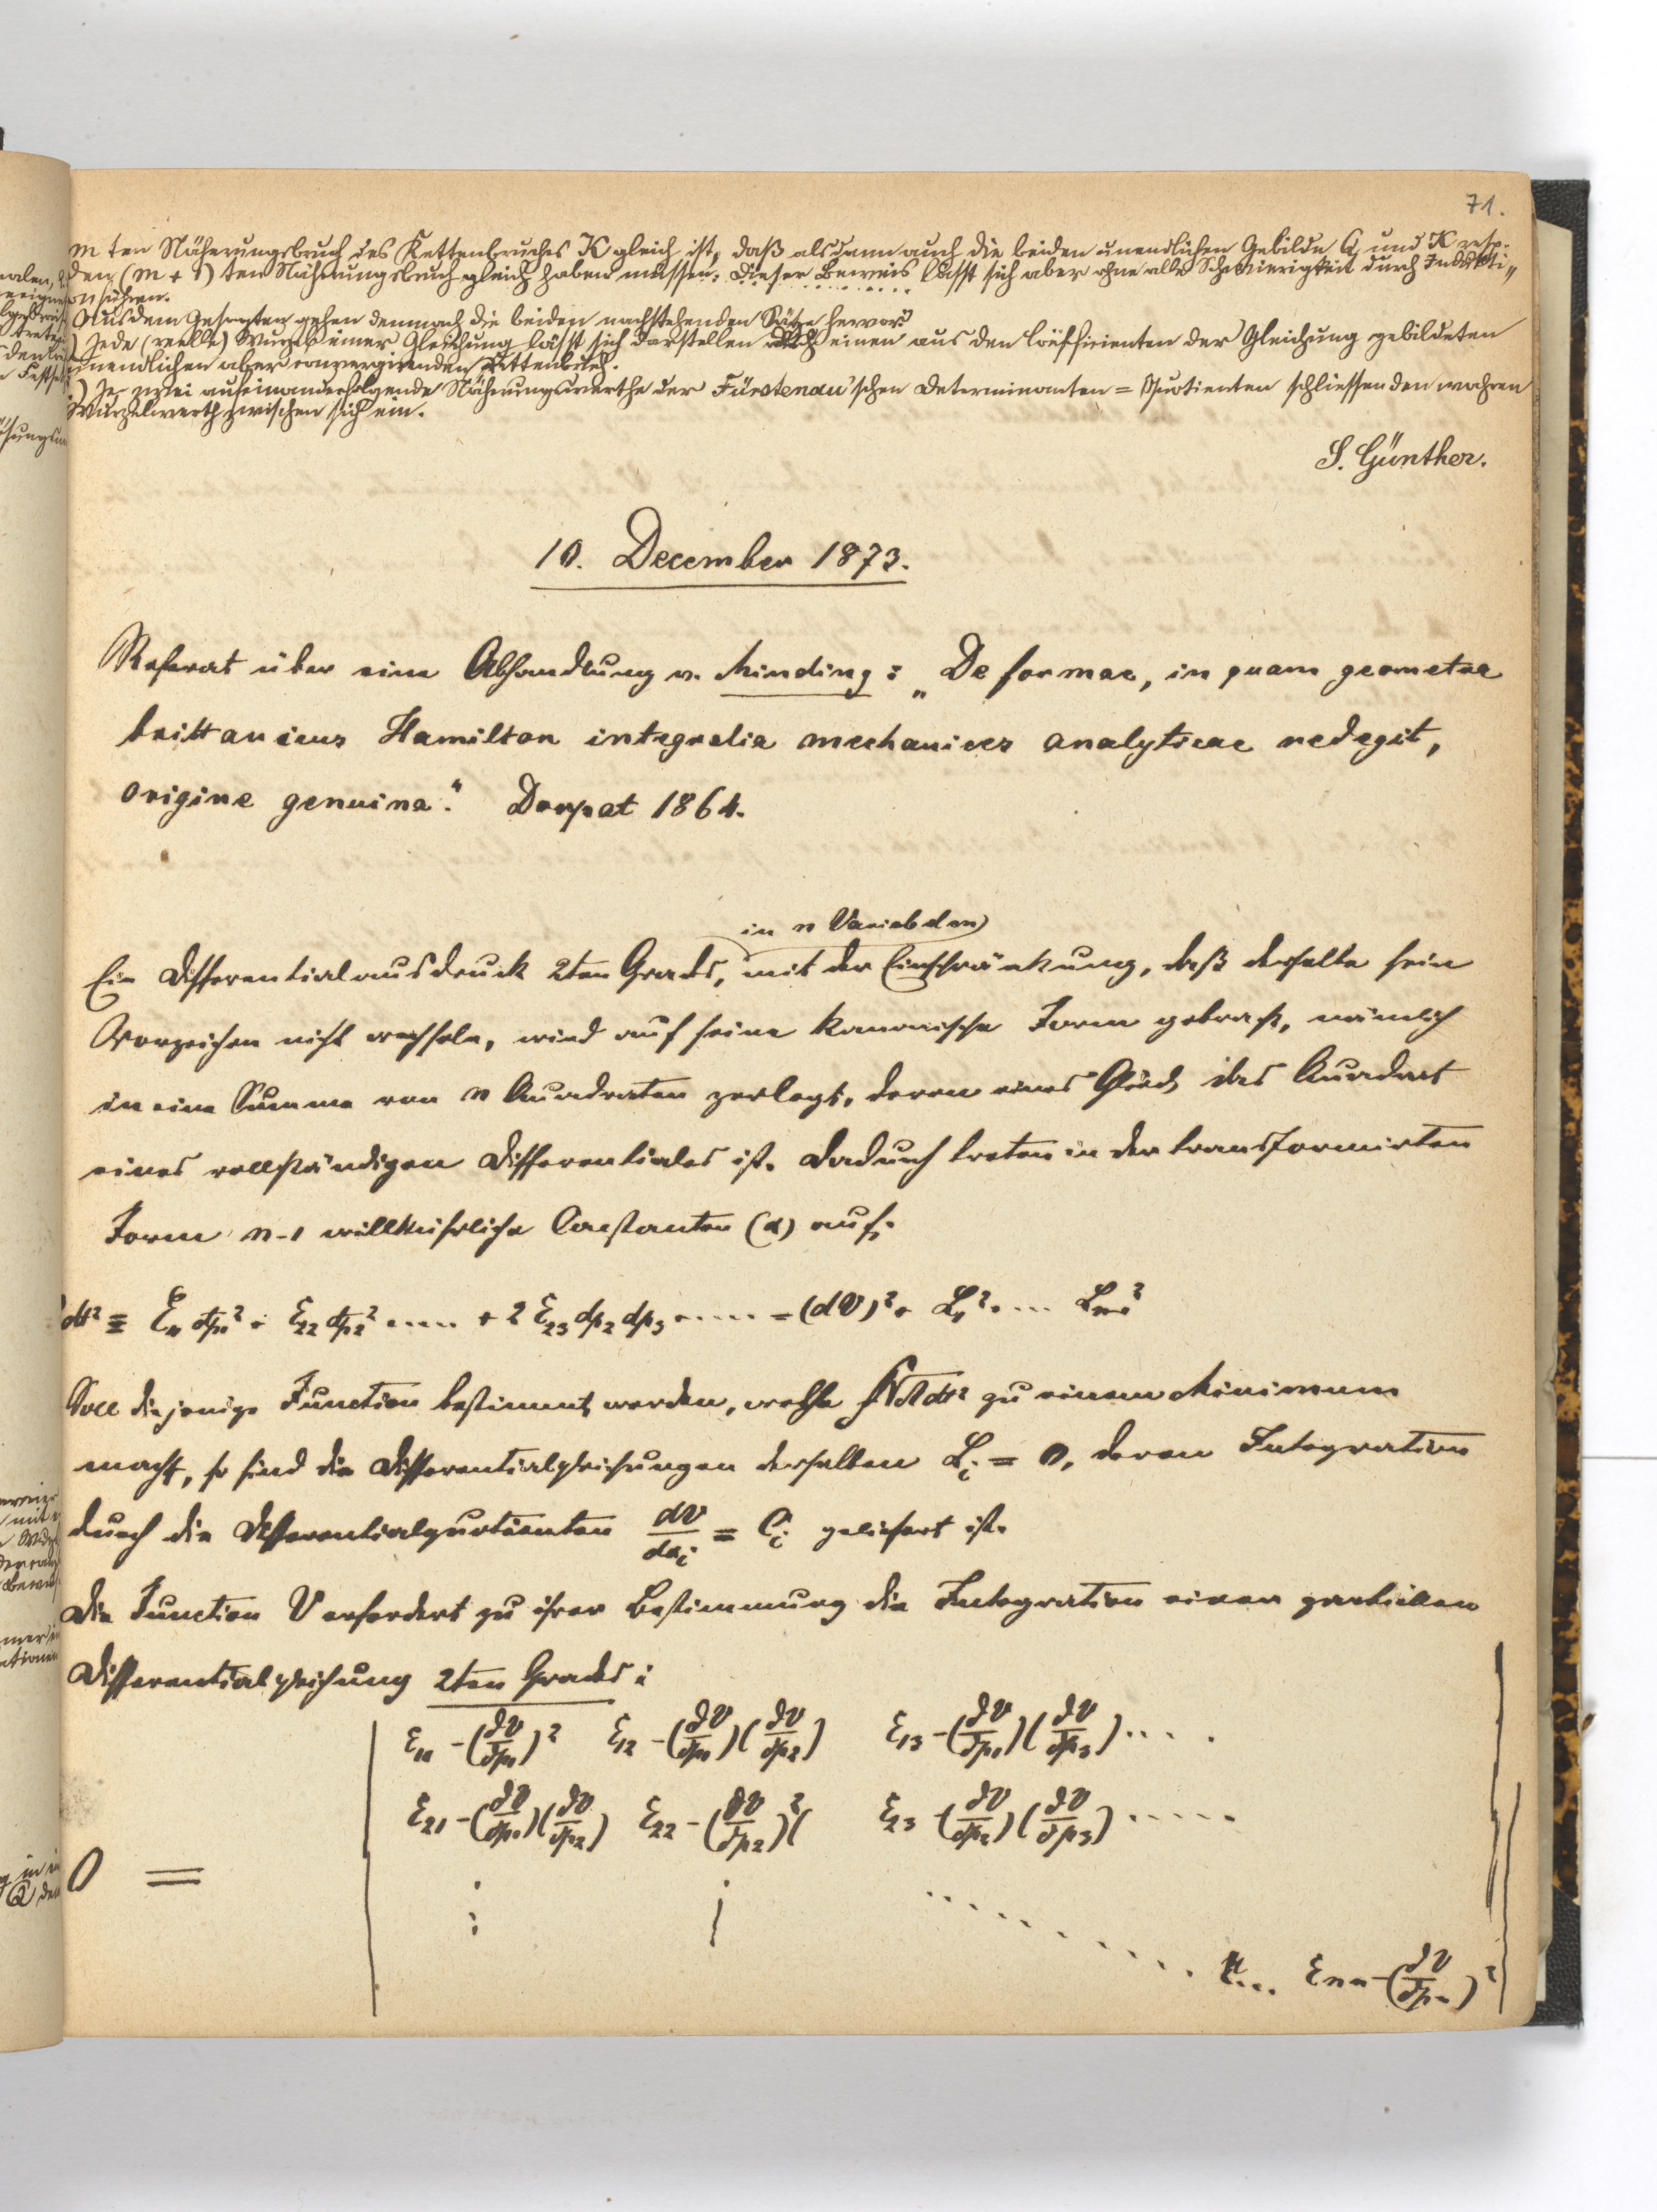 71.
m ten Näherungsbruch des Kettenbruches K gleich ist, daß alsdann auch die beiden unendlichen Gebilde Q und K resp.
den (m + 1) ten Näherungsbruch gleich haben müssen. Dieser Beweis lässt sich aber ohne alle Schwierigkeit durch Indukti„
on führen.
Aus dem Gesagten gehen demnach die beiden nachstehenden Sätze hervor:
) Jede (reelle) Wurzel einer Gleichung lässt sich darstellen durch einen aus den Coëfficienten der Gleichung gebildeten
unendlichen aber convergirenden Kettenbruch.
) Je zwei aufeinanderfolgende Näherungswerthe der Fürstenau'schen Determinanten = Quotienten schliessen den wahren
Wurzelwerth zwischen sich ein.
S. Günther.
10. December 1873.
Referat über eine Abhandlung v. Minding: „De formae, in quam geometra
brittanicus Hamilton integralia mechanices analyticae redegit,
origine genuina". Dorpat 1864.
in n Variabeln
Ein Differentialausdruck 2ten Grads, mit der Einschränkung, daß derselbe sein
Vorzeichen nicht wechsele, wird auf seine kanonische Form gebracht, nämlich
in eine Summe von n Quadraten zerlegt, deren eines Glied das Quadrat
eines vollständigen Differentiales ist. Dadurch treten in der transformirten
Form n-1 willkührliche Constanten (α) auf.
dt² = ε₁₁ dp₁² + ε₂₂ dp₂² ..... + 2 ε₂₃ dp₂ dp₃ ..... = (dV)² + L₁² + ... Lₙ₋₁²
Soll diejenige Function bestimmt werden, welche zu einem Minimum
macht, so sind die Differentialgleichungen derselben Lᵢ = 0, deren Integration
durch die Differentialquotienten dV/dαᵢ = Cᵢ geliefert ist.
Die Function V erfordert zu ihrer Bestimmung die Integration einer partiellen
Differentialgleichung 2ten Grades:
ε₁₁ - (∂V/∂p₁)² ε₁₂ - (∂V/∂p₁)(∂V/∂p₂) ε₁₃ - (∂V/∂p₁)(∂V/∂p₃) ....
ε₂₁ - (∂V/∂p₁)(∂V/∂p₂) ε₂₂ - (∂V/∂p₂)² ε₂₃ - (∂V/∂p₂)(∂V/∂p₃) .....
0 =
εₙₙ - (∂V/∂pₙ)²